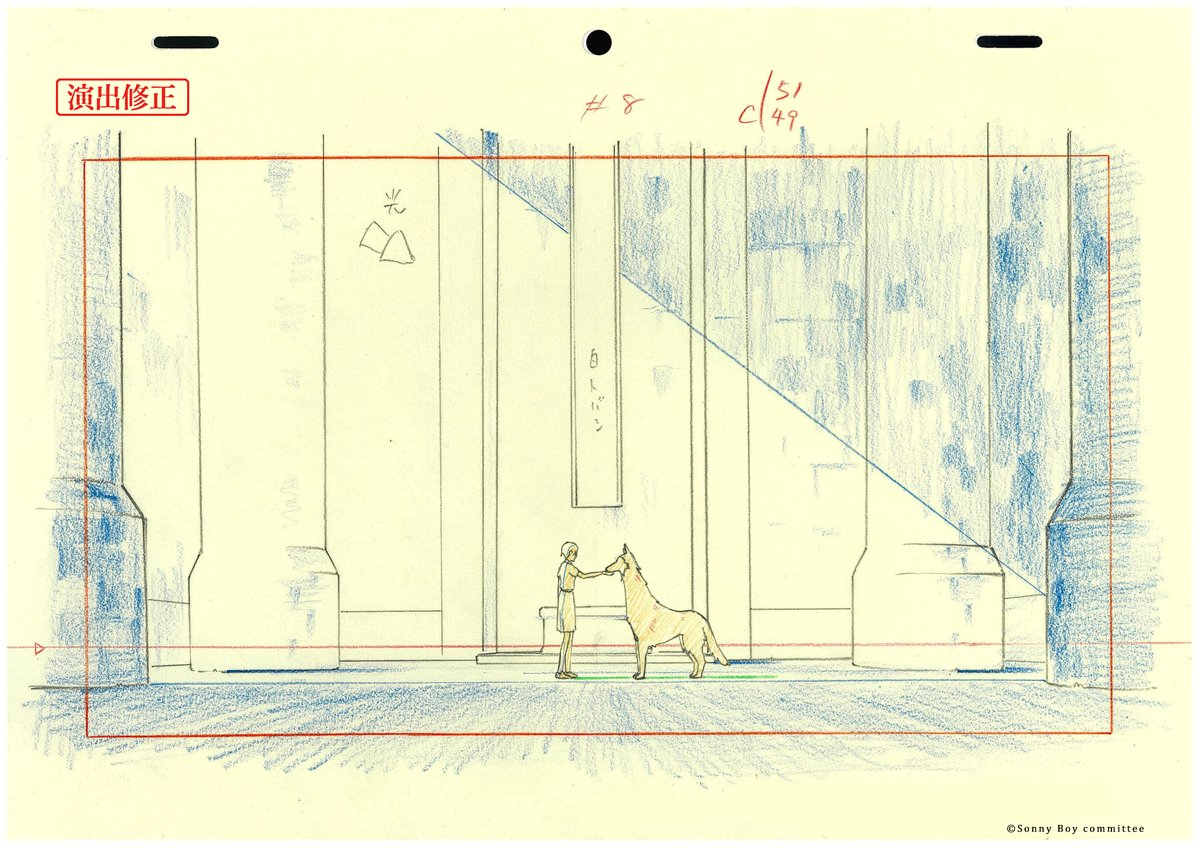 演出修正
# 8
C 51
49
光
©Sonny Boy committee